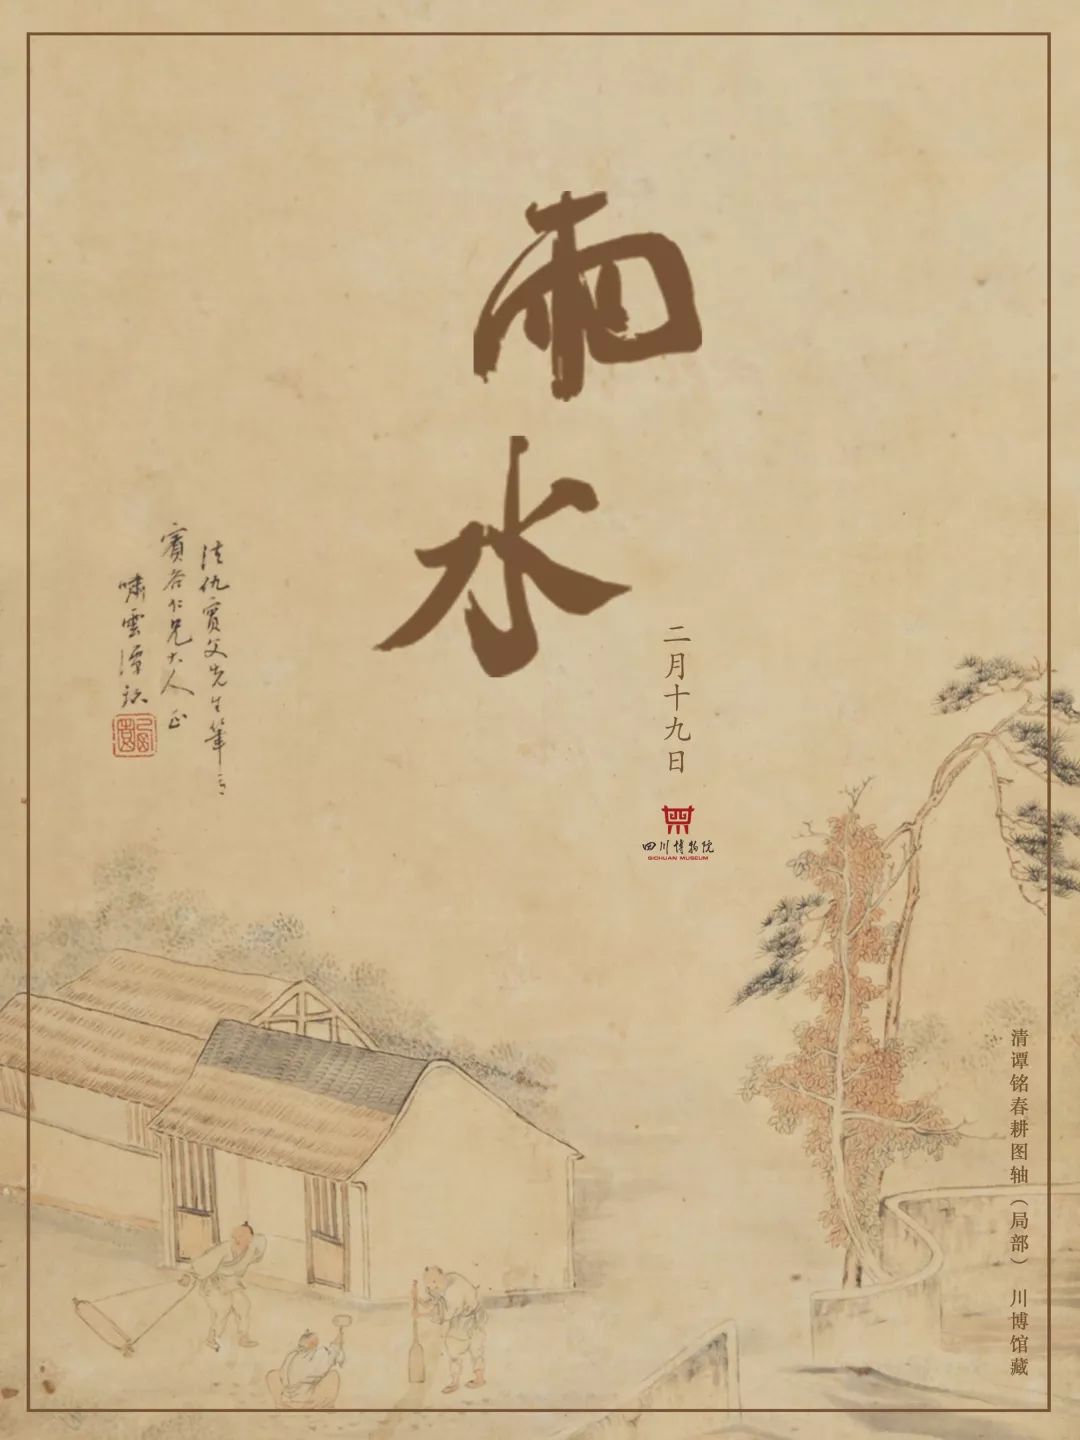 雨
水
二月十九日
四川博物院
SICHUAN MUSEUM
法仇實父先生筆
賓谷仁兄大人正
嘯雲譚銘
清谭铭春耕图轴（局部） 川博馆藏